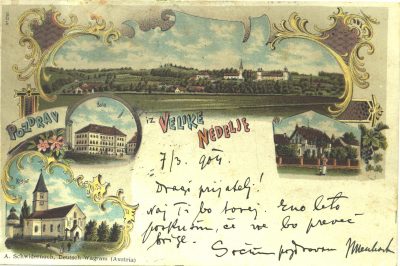 POZDRAV
IZ VELIKE
NEDELJE
Šola
7/3. 904.
"Dragi prijatelj!
Naj Ti bo torej. Eno leto
poskusim, če ne bo preveč
Srčen pozdrav
A. Schwidernoch, Deutsch-Wagram (Austria)